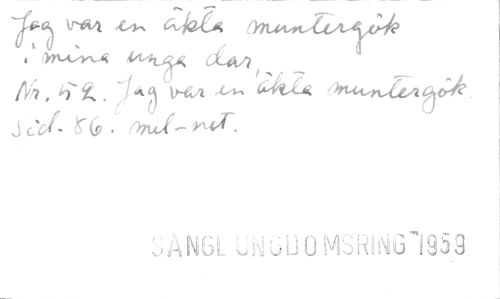 Jag var en äkta muntergök
i mina unga dar,
Nr. 52. Jag var en äkta muntergök
sid. 86. mel-not.
SÅNGL UNGDOMSRING 1959